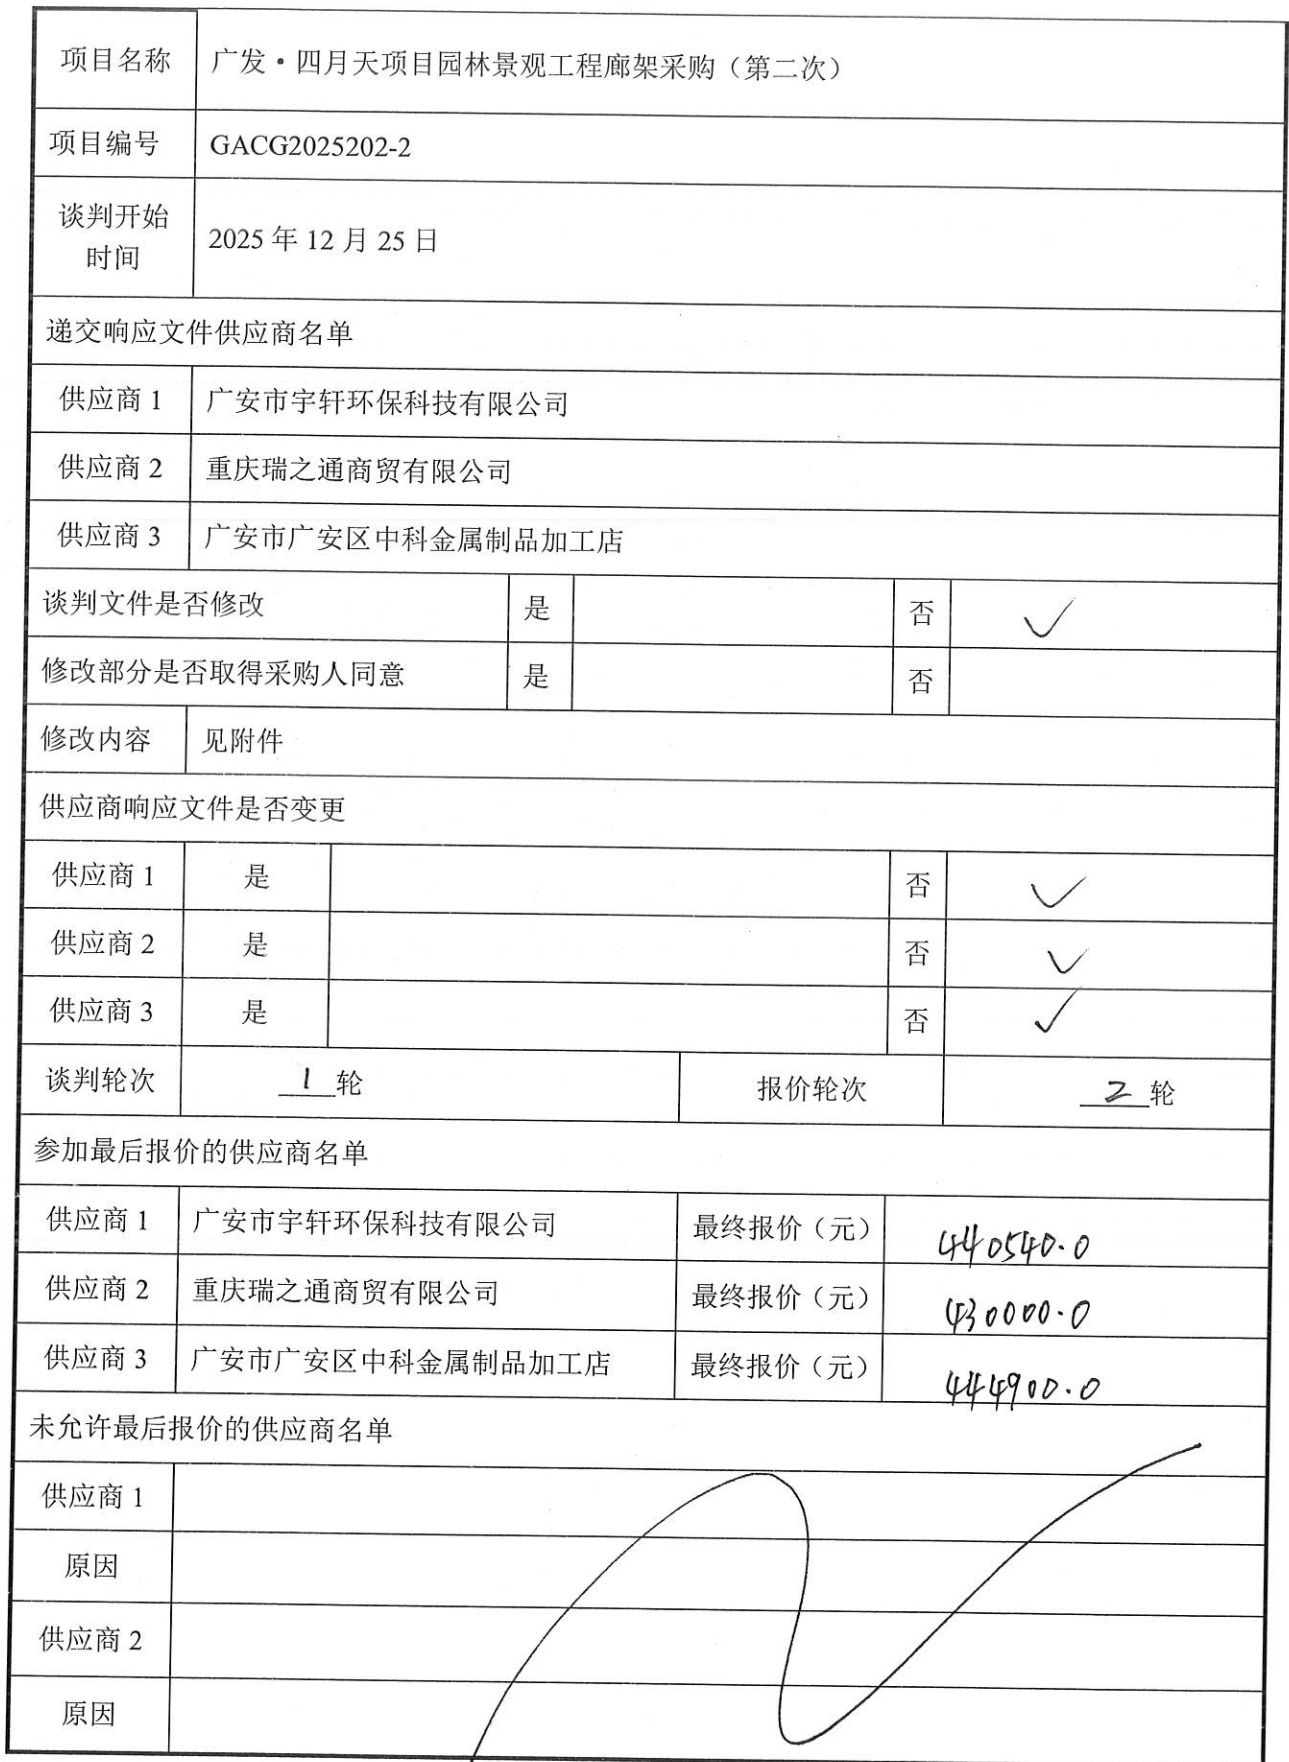 项目名称 广发·四月天项目园林景观工程廊架采购（第二次）
项目编号 GACG2025202-2
谈判开始
时间 2025 年 12 月 25 日
递交响应文件供应商名单
供应商 1 广安市宇轩环保科技有限公司
供应商 2 重庆瑞之通商贸有限公司
供应商 3 广安市广安区中科金属制品加工店
谈判文件是否修改 是 否 ✓
修改部分是否取得采购人同意 是 否
修改内容 见附件
供应商响应文件是否变更
供应商 1 是 否 ✓
供应商 2 是 否 ✓
供应商 3 是 否 ✓
谈判轮次 1 轮 报价轮次 2 轮
参加最后报价的供应商名单
供应商 1 广安市宇轩环保科技有限公司 最终报价（元） 440540.0
供应商 2 重庆瑞之通商贸有限公司 最终报价（元） 430000.0
供应商 3 广安市广安区中科金属制品加工店 最终报价（元） 444900.0
未允许最后报价的供应商名单
供应商 1
原因
供应商 2
原因